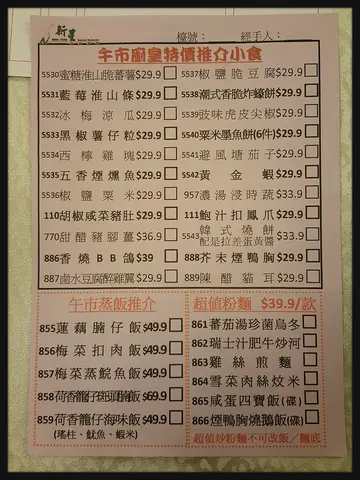 新星
檯號： 經手人：
午市廚皇特價推介小食
5530 蜜糖淮山脆蕃薯 $29.9
5537 椒鹽脆豆腐 $29.9
5531 藍莓淮山條 $29.9
5538 潮式香脆炸蠔餅 $29.9
5532 冰梅涼瓜 $29.9
5539 豉味虎皮尖椒 $29.9
5533 黑椒薯仔粒 $29.9
5540 粟米墨魚餅(6件) $29.9
5534 西檸雞塊 $29.9
5541 避風塘茄子 $29.9
5535 五香煙燻魚 $29.9
5542 黃金蝦 $29.9
5536 椒鹽粟米 $29.9
957 濃湯浸時蔬 $33.9
110 胡椒咸菜豬肚 $29.9
111 鮑汁扣鳳爪 $29.9
770 甜醋豬腳薑 $36.9
5543 韓式燒餅配是拉差蛋黃醬 $29.9
886 香燒BB鴿 $39
888 芥末煙鴨胸 $29.9
887 鹵水豆腐醉雞翼 $29.9
889 陳醋貓耳 $29.9
午市蒸飯推介
855 蓮藕腩仔飯 $49.9
856 梅菜扣肉飯 $49.9
857 梅菜蒸鯇魚飯 $49.9
858 荷香籠仔斑頭腩飯 $69.9
859 荷香籠仔海味飯 $49.9
(瑤柱、魷魚、蝦米)
超值粉麵 $39.9/款
861 蕃茄湯珍菌烏冬
862 瑞士汁肥牛炒河
863 雞絲煎麵
864 雪菜肉絲炆米
865 咸蛋四寶飯(碟)
866 煙鴨胸燒鵝飯(碟)
超值炒粉麵不可改飯／麵底